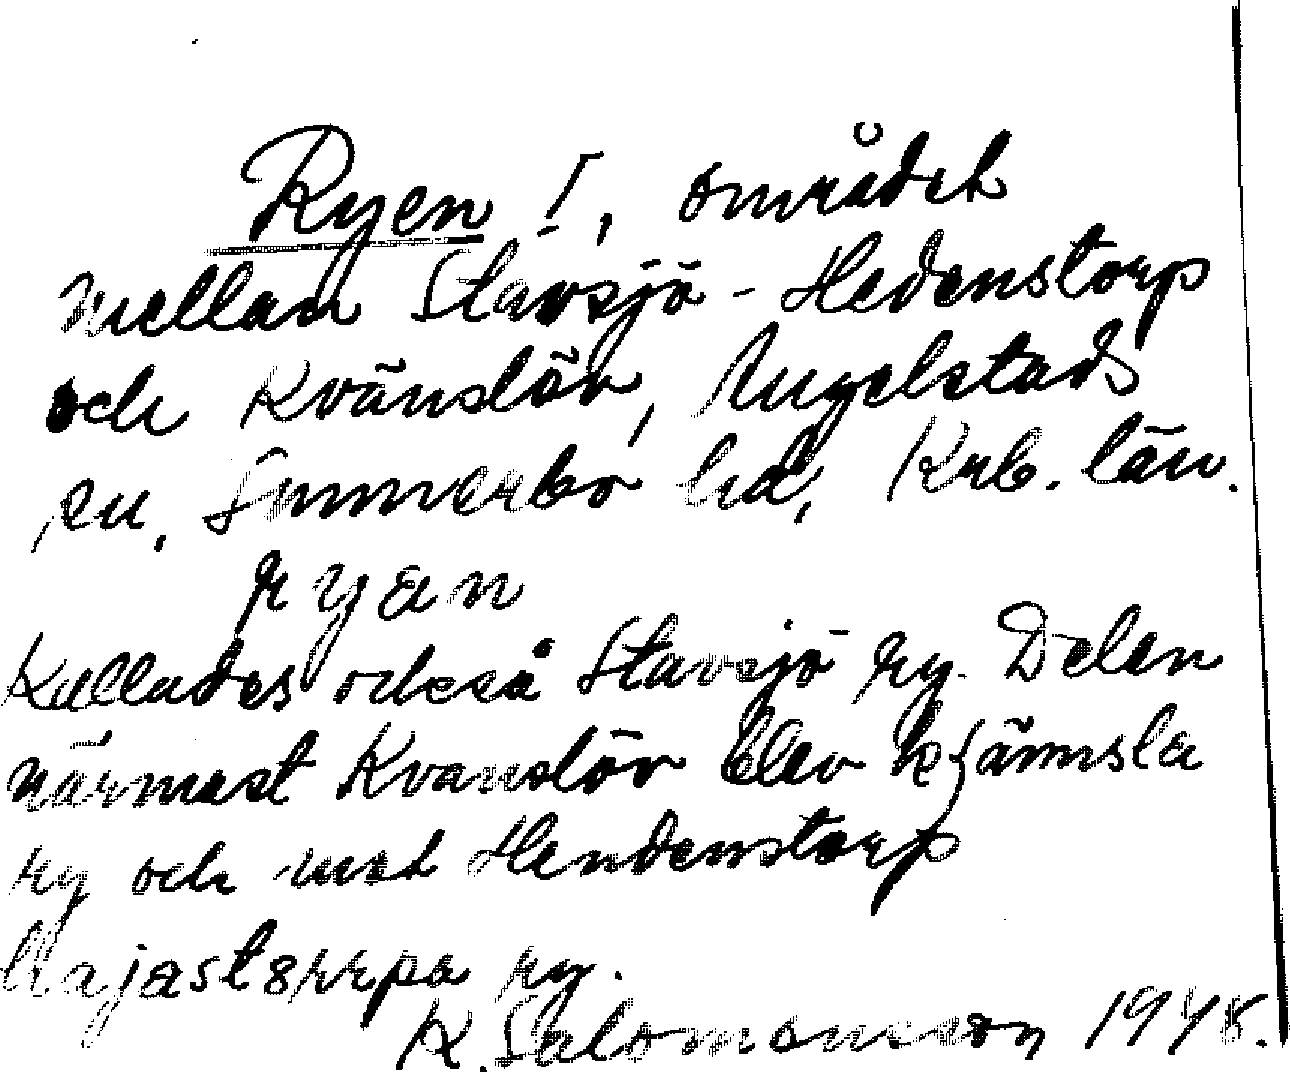 Ryen !, området
mellan Stavsjö - Hedenstorp
och Kvänslöv, Angelstads
sn, Sunnerbo hd, Krb. län.
ryan
Kallades också Stavsjö ry. Delen
närmast Kvanslöv blev kjännsla
ry och mot Hendenstorp
ry.
K. Salomonsson 1948.